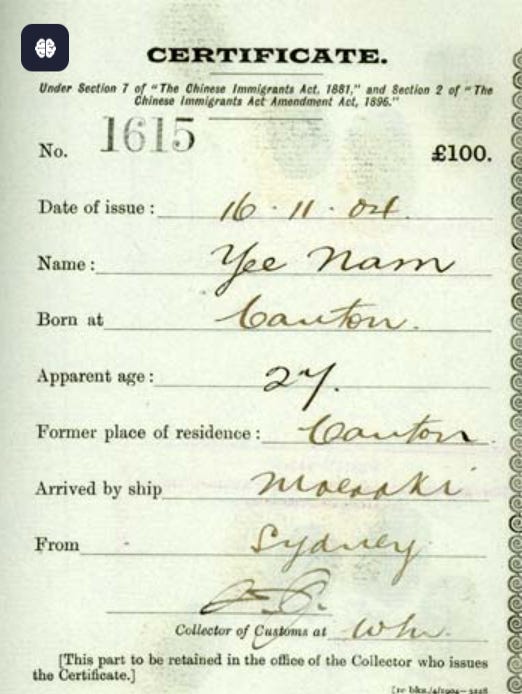 CERTIFICATE.
Under Section 7 of "The Chinese Immigrants Act, 1881," and Section 2 of "The
Chinese Immigrants Act Amendment Act, 1896."
No. 1615 £100.
Date of issue: 16 · 11 · 04.
Name: Yee Nam
Born at Canton.
Apparent age: 27.
Former place of residence: Canton.
Arrived by ship Moeraki
From Sydney
Collector of Customs at
[This part to be retained in the office of the Collector who issues
the Certificate.]